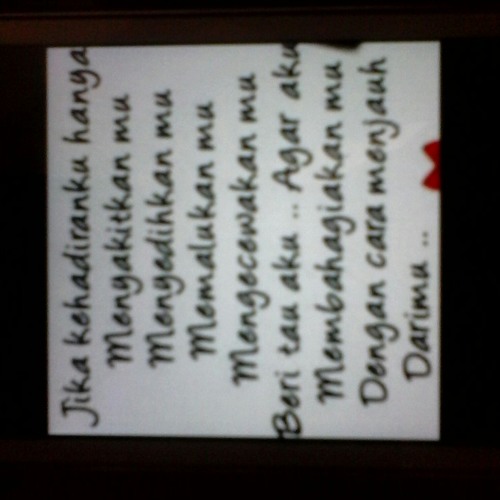 Jika kehadiranku hanya
Menyakitkan mu
Mengedihkan mu
Memalukan mu
Mengecewakan mu
Beri tau aku .. Agar aku
Membahagiakan mu
Dengan cara menjauh
Darimu ..